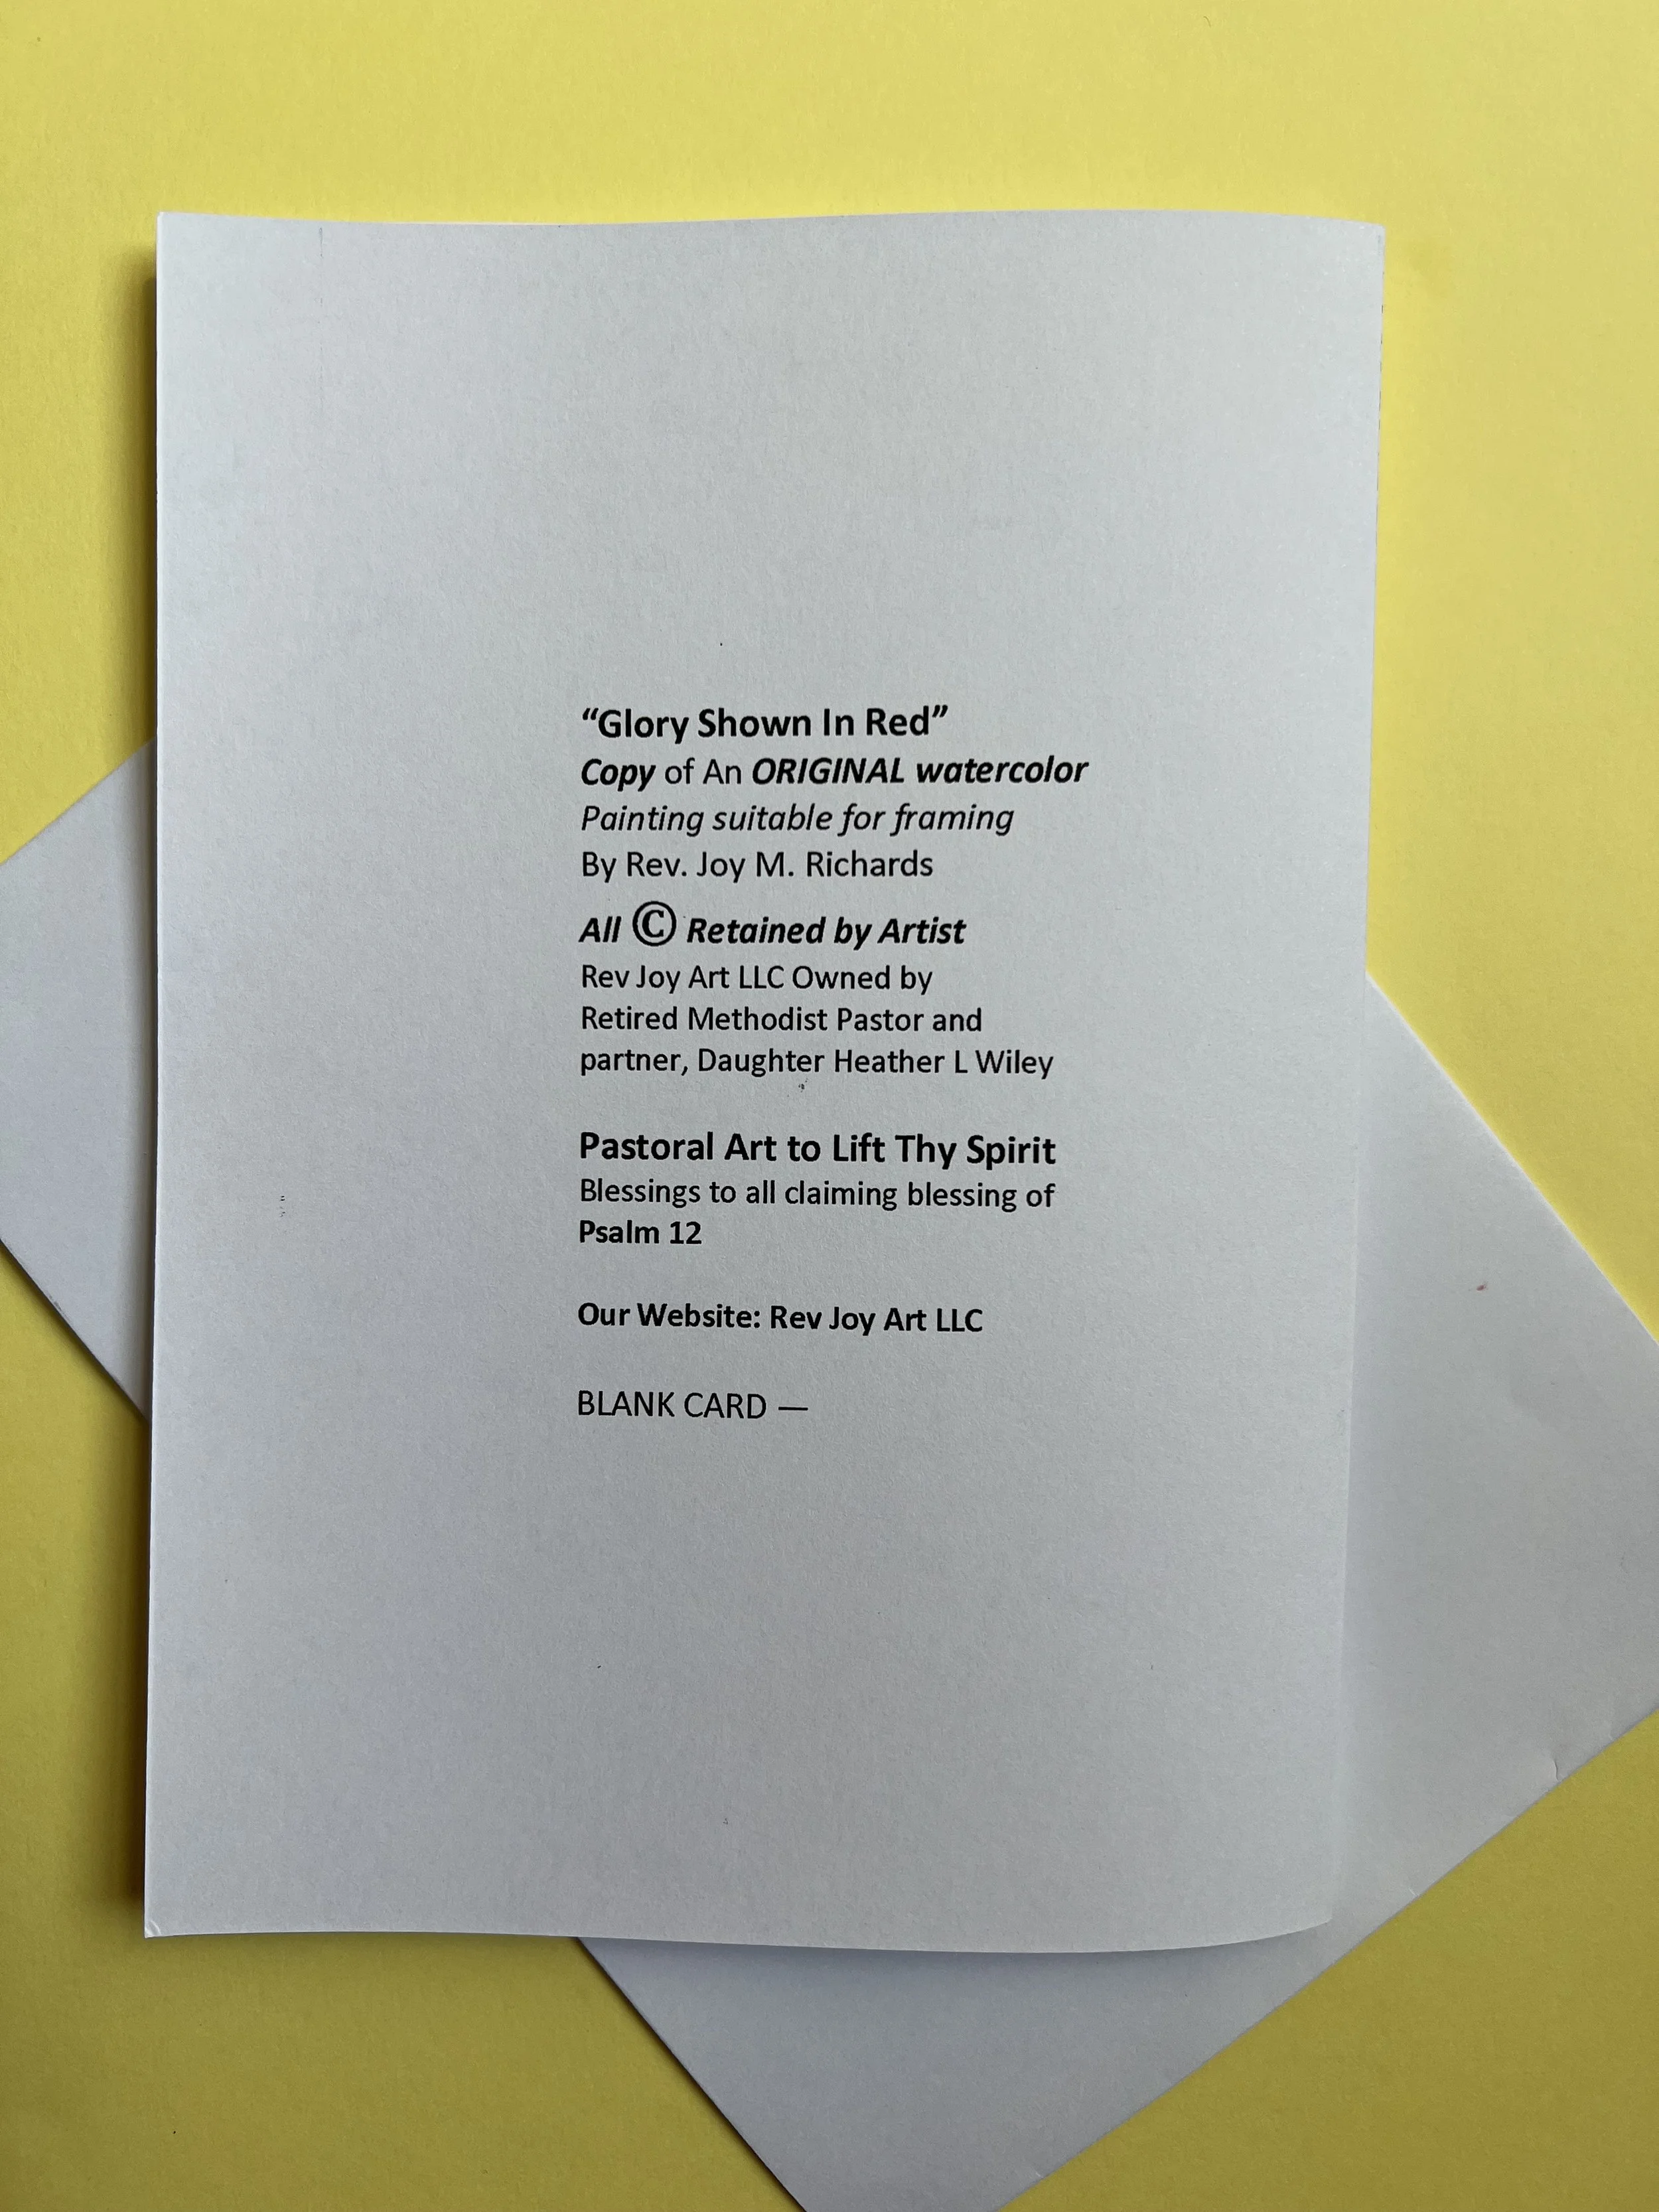 “Glory Shown In Red”
Copy of An ORIGINAL watercolor
Painting suitable for framing
By Rev. Joy M. Richards
All © Retained by Artist
Rev Joy Art LLC Owned by
Retired Methodist Pastor and
partner, Daughter Heather L Wiley
Pastoral Art to Lift Thy Spirit
Blessings to all claiming blessing of
Psalm 12
Our Website: Rev Joy Art LLC
BLANK CARD —